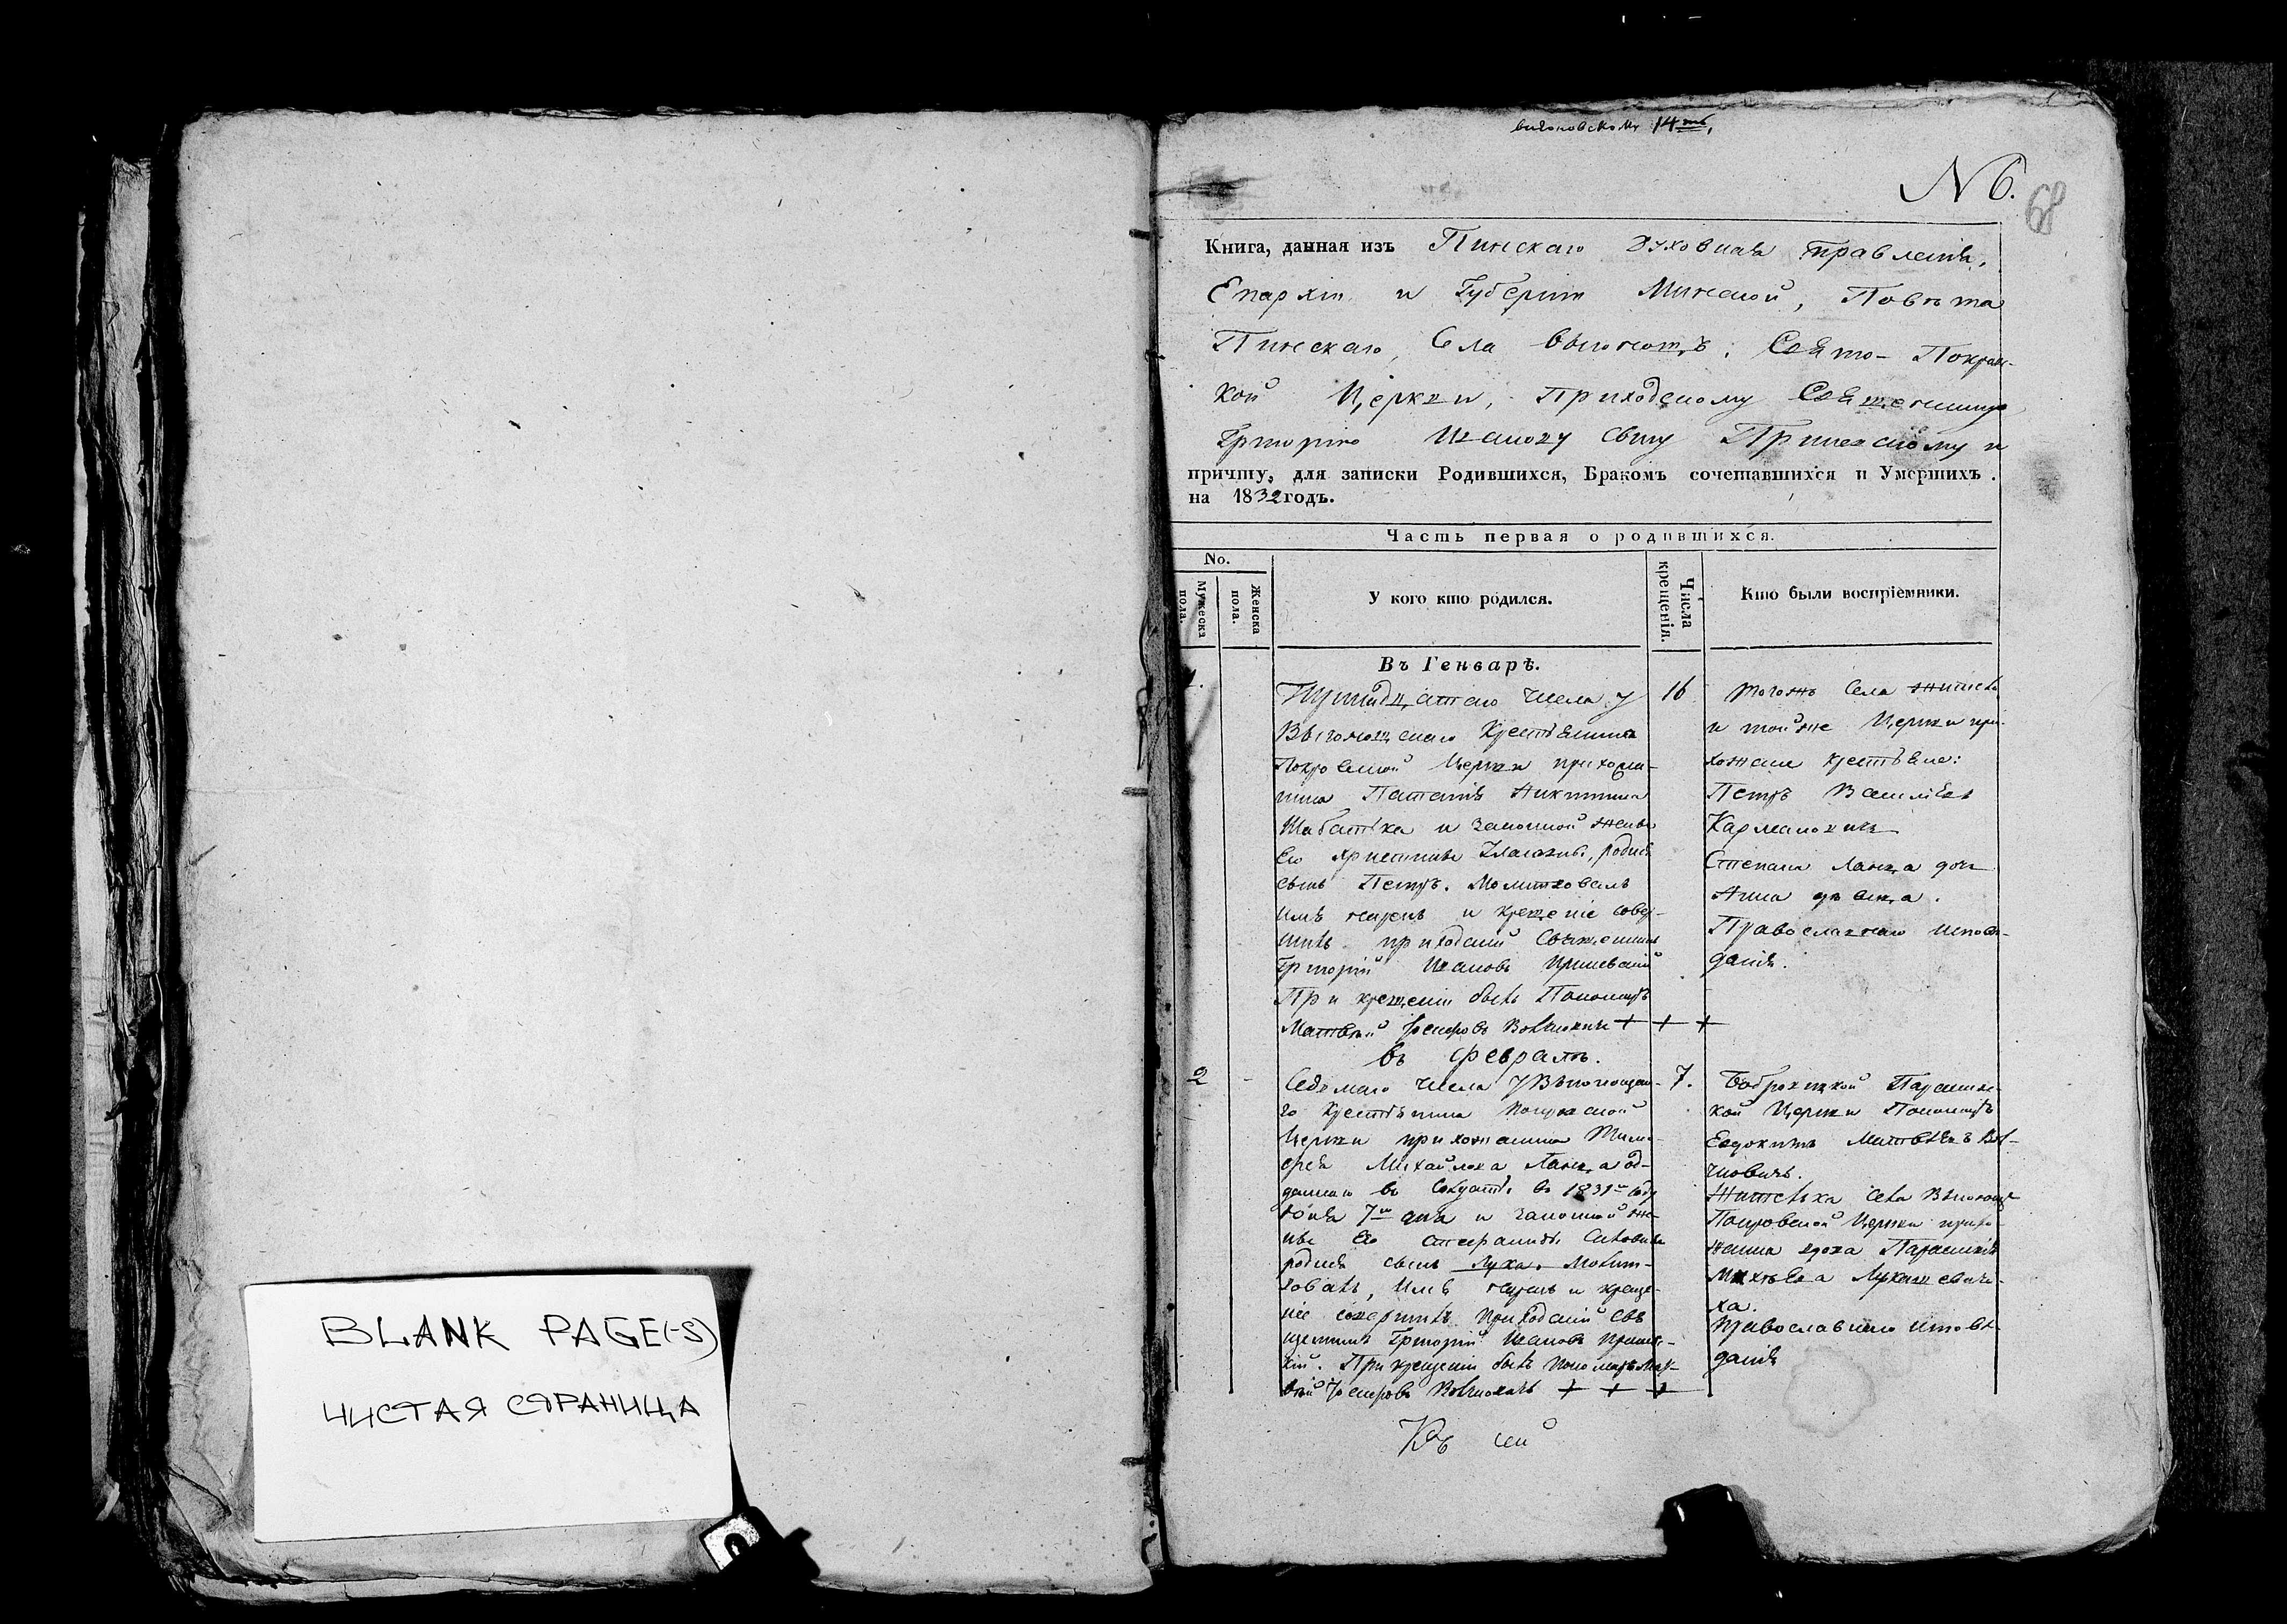 14тъ,
N 6.
68
Книга, данная изъ Пинскаго Духовнаго Правленія,
Епархіи и Губерніи Минской, Повѣта
Пинскаго, Села Выгонощъ, Свято-Покров-
кой Церкви, Приходскому Священнику
Григорію Иванову сыну и
причту, для записки Родившихся, Бракомъ сочетавшихся и Умершихъ
на 1832 годъ.
Часть первая о родившихся.
No.
Мужеска пола.
Женска пола.
У кого кто родился.
Числа крещенія.
Кто были воспріемники.
Въ Генварѣ.
числа у
Выгонощскаго Крестьянина
Покровской Церкви прихожа-
нина Никитина
и законной жены
Его Христины родился
сынъ Петръ. Молитвовалъ
имя нарекъ и крещеніе совер-
шилъ приходскій Священникъ
Григорій Ивановъ
При крещеніи былъ Пономарь
Матвѣй Іосифовъ Вовчковичъ + + +
16
тогожъ Села жители
и тойже Церкви при-
хожане крестьяне:
Петръ Васильевъ
Кармановичъ
Степана Ланца дочь
Анна дѣвица.
Православнаго исповѣ-
данія.
въ Февралѣ.
2
-
Седьмаго числа у Выгонощска-
го крестьянина Покровской
Церкви прихожанина Тимо-
фея Михайлова Ланца от-
даннаго въ въ 1831м году
7го дня и законной же-
ны Его Стефаниды
родился сынъ Лука. Молит-
вовалъ, имя нарекъ и креще-
ніе совершилъ Приходскій Свя-
щенникъ Григорій Ивановъ
При крещеніи былъ пономарь Мат-
вѣй Іосифовъ Вовчковичъ + + +
7.
Бобровицкой Параскев-
кой Церкви Пономарь
Евдокимъ Матвѣевъ Вов-
чковичъ.
Жителька села Выгонощъ
Покровской Церкви прихо-
жанка вдова Параскевія
Михѣева Лукашевичи-
ха.
Православнаго исповѣ-
данія
Къ сей
BLANK PAGE(-S)
ЧИСТАЯ СТРАНИЦА